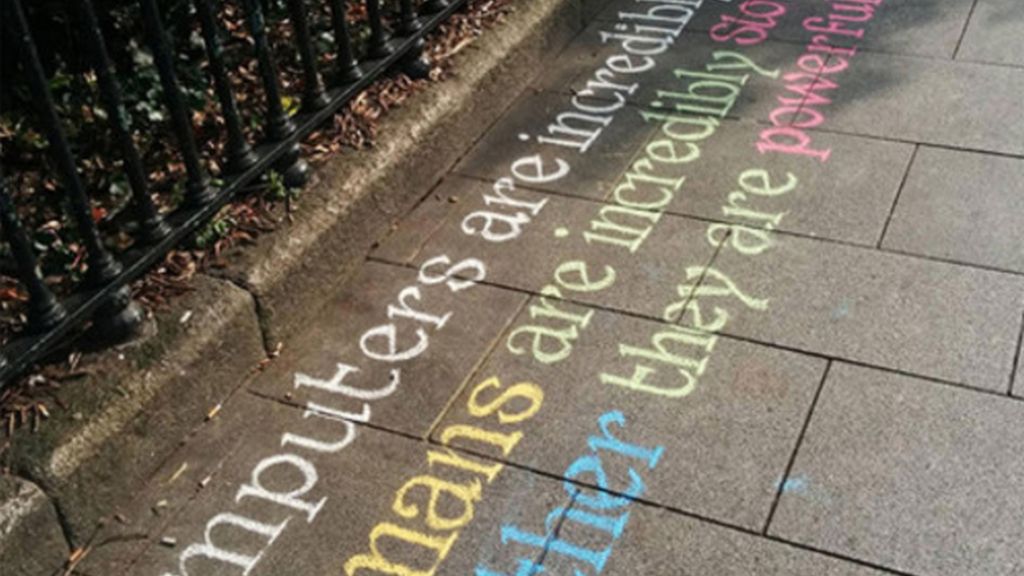 mputers are incredibl
mans are incredibly slo
ther they are powerful